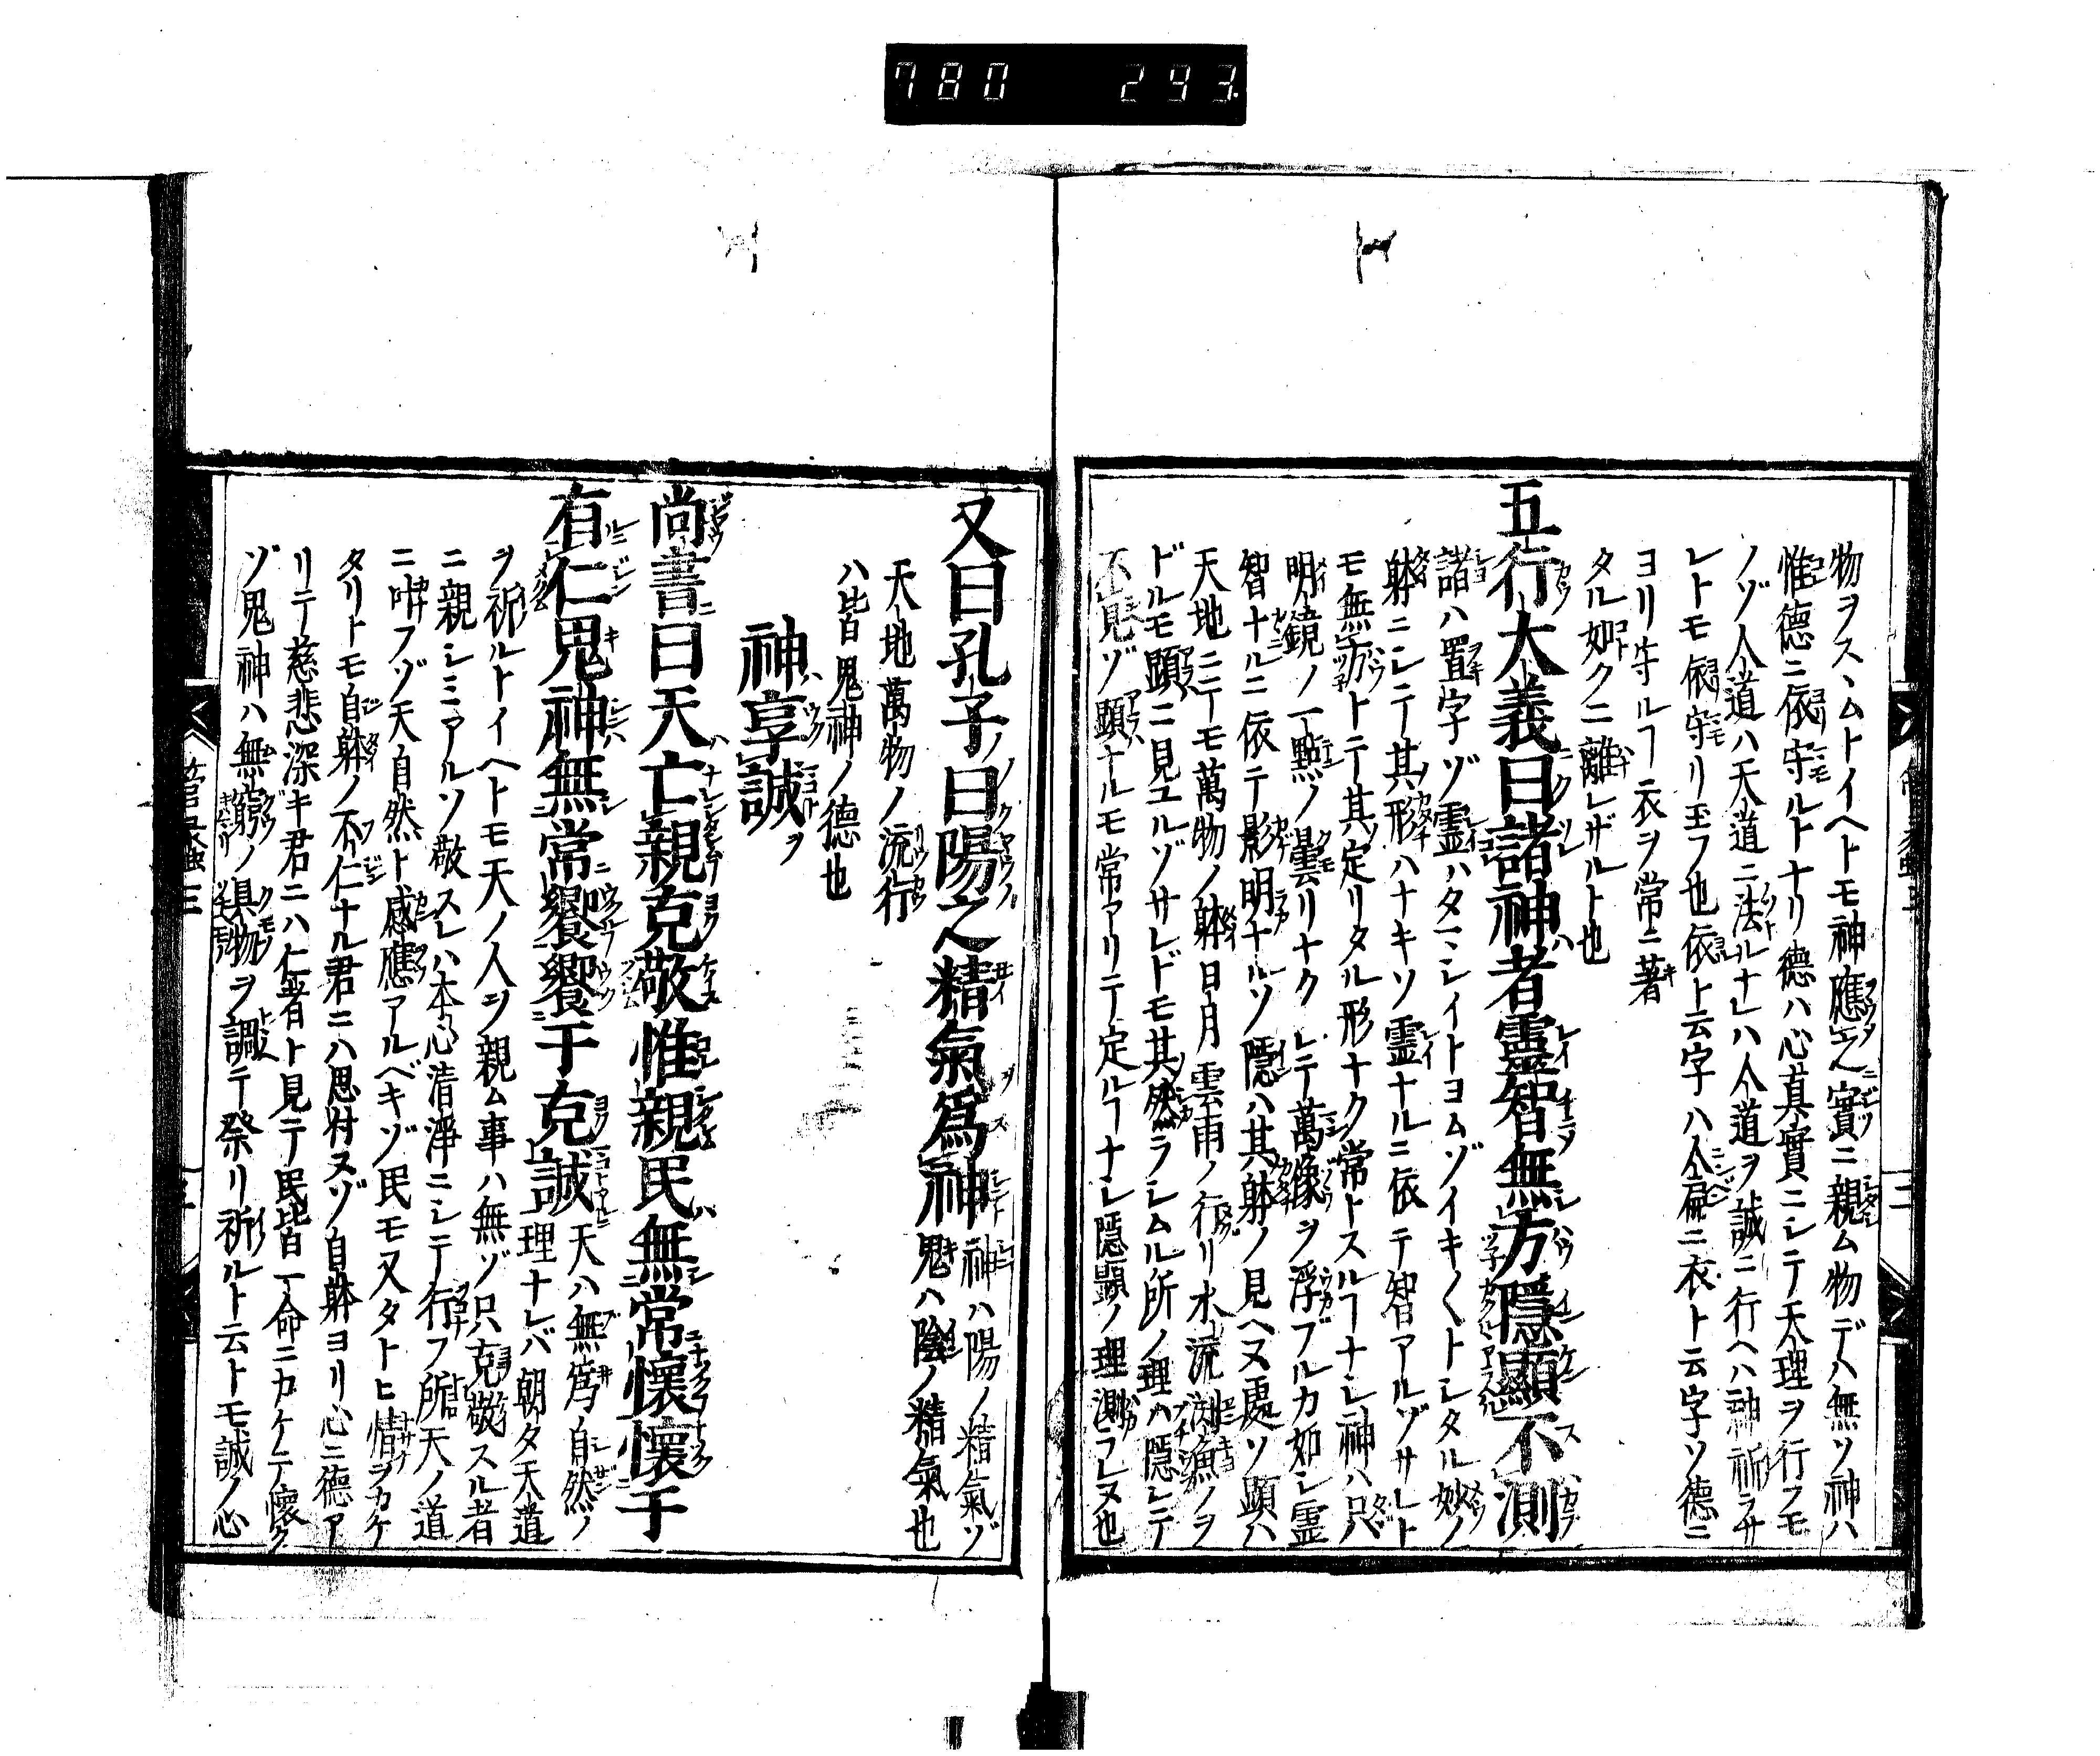 780 293.
物ヲスヽムトイヘトモ神應之實ニ親ム物デハ無ソ神ハ
惟德ニ依守ルトナリ德ハ心真實ニシテ天理ヲ行フモ
ノゾ人道ハ天道ニ法ルナレハ人道ヲ誠ニ行ヘハ神祈ラサ
レトモ依守リ玉フ也依ト云字ハ人扁ニ衣ト云字ソ德ニ
ヨリ守ルヿ衣ヲ常ニ著
タル如クニ離レザルト也
五行大義曰諸神者靈智無方隱顯不測
諸ハ置字ゾ霊ハタマシイトヨムゾイキ〱トシタル妙ノ
躰ニシテ其形ハナキソ霊ナルニ依テ智アルゾサレト
モ無方トテ其定リタル形ナク常トスルヿナシ神ハ只
明鏡ノ一點ノ曇リナクシテ萬像ヲ浮ブルカ如シ霊
智ナルニ依テ影明ナルソ隱ハ其躰ノ見ヘヌ處ソ顯ハ
天地ニテモ萬物ノ躰日月雲雨ノ行リ水流ノヲ
ドルモ顯ニ見ユルゾサレドモ其然ラシムル所ノ理ハ隱レテ
不見ゾ顯ナルモ常アリテ定ルヿナシ隱顯ノ理測ラレヌ也
又曰孔子ノ曰陽之精氣爲神 神ハ陽ノ精氣ゾ
鬼ハ陰ノ精氣也
天地萬物ノ流行
ハ皆鬼神ノ德也
神享誠
尚書曰天亡親克敬惟親民無常懷懷于
有仁鬼神無常饗饗于克誠 天ハ無爲自然ノ
理ナレバ朝タ天道
ヲ祈ルトイヘトモ天ノ人ヲ親ム事ハ無ゾ只克敬スル者
ニ親シミアルソ敬スレハ本心清淨ニシテ行フ所天ノ道
ニ叶フゾ天自然ト感應アルベキゾ民モ又タトヒ情ヲカケ
タリトモ自躰ノ不仁ナル君ニハ思付ヌゾ自躰ヨリ心ニ德ア
リテ慈悲深キ君ニハ仁者ト見テ民皆一命ニカケテ懷ク
ゾ鬼神ハ無窮ノ具物ヲ調テ祭リ祈ルト云トモ誠ノ心